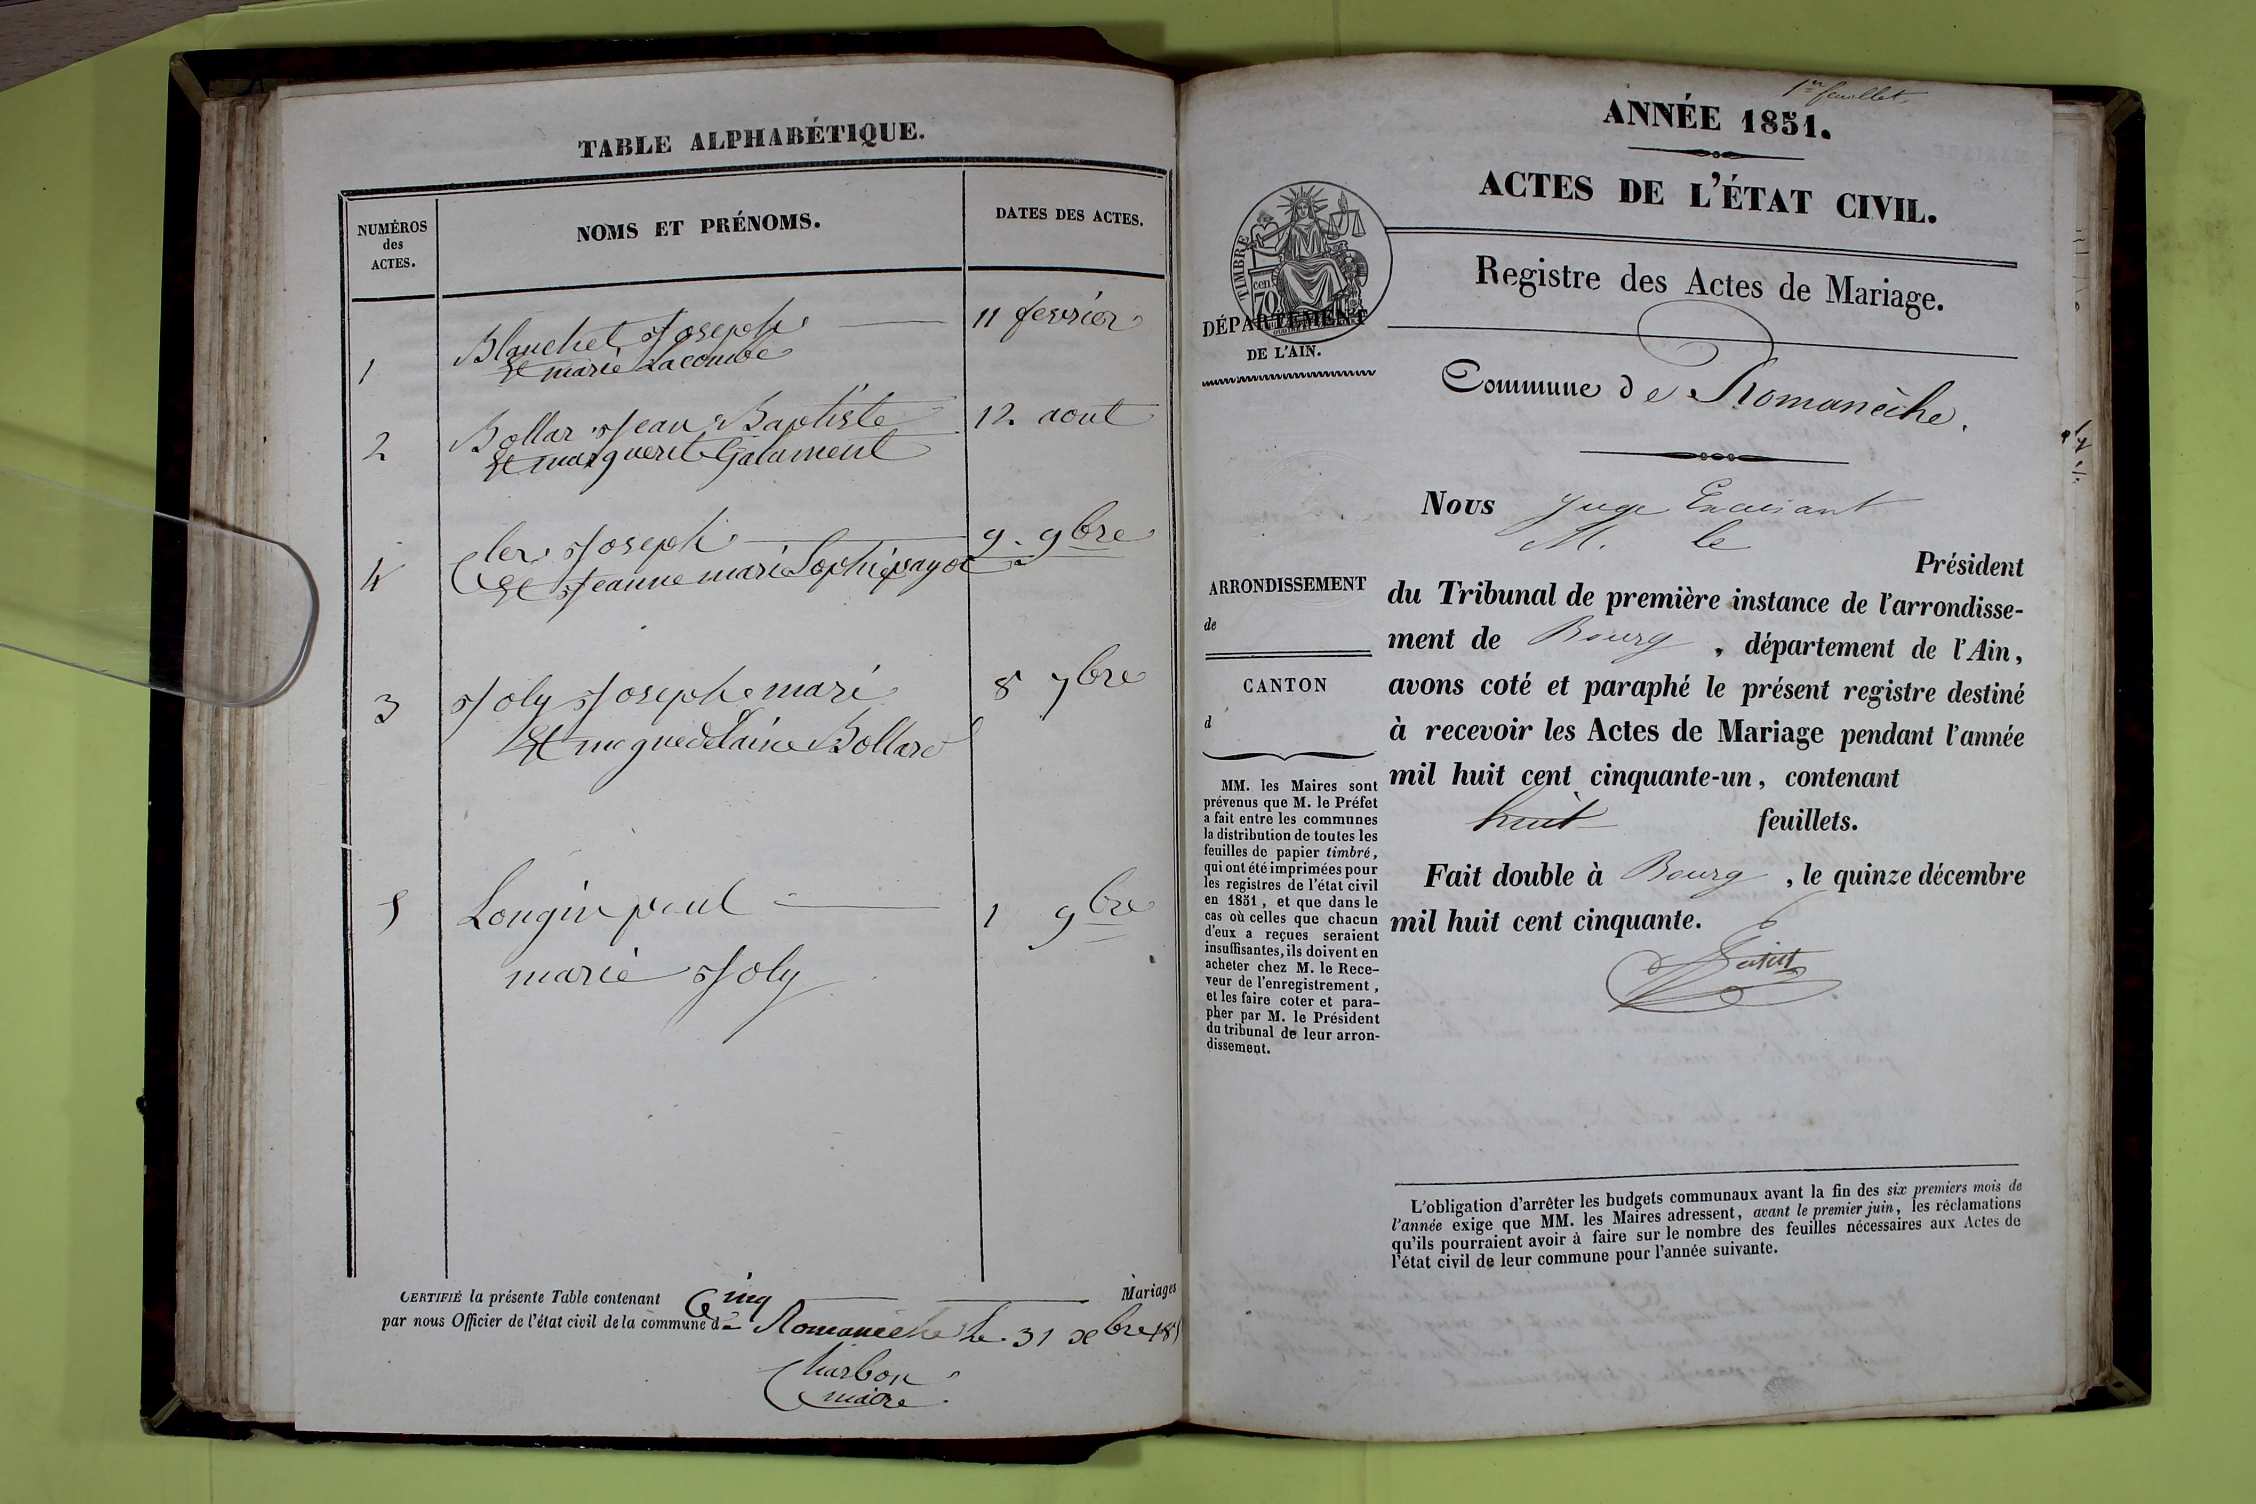 TABLE ALPHABÉTIQUE.
NUMÉROS des ACTES.
NOMS ET PRÉNOMS.
DATES DES ACTES.
1 Blanchet Joseph 11 fevrier
et marie Lacombe
2 Bollar Jean Baptiste 12. aout
et marguerit Galament
4 Cler Joseph 9. 9bre
et Jeanne mari Sophi payot
3 Joly Joseph mari 8 7bre
et maguedelaine Bollard
5 Longin paul 1 9bre
marie Joly
CERTIFIÉ la présente Table contenant Cinq Mariages
par nous Officier de l'état civil de la commune de Romanèche le 31 xbre 185
Charbon
maire
1er feuillet
ANNÉE 1851.
ACTES DE L'ÉTAT CIVIL.
Registre des Actes de Mariage.
TIMBRE
cen
70
DÉPARTEMENT
DE L'AIN.
Commune de Romanèche.
Nous Juge
M. le
Président
du Tribunal de première instance de l'arrondisse-
ment de Bourg, département de l'Ain,
avons coté et paraphé le présent registre destiné
à recevoir les Actes de Mariage pendant l'année
mil huit cent cinquante-un, contenant
huit feuillets.
Fait double à Bourg, le quinze décembre
mil huit cent cinquante.
ARRONDISSEMENT
de
CANTON
d
MM. les Maires sont
prévenus que M. le Préfet
a fait entre les communes
la distribution de toutes les
feuilles de papier timbré,
qui ont été imprimées pour
les registres de l'état civil
en 1851, et que dans le
cas où celles que chacun
d'eux a reçues seraient
insuffisantes, ils doivent en
acheter chez M. le Rece-
veur de l'enregistrement,
et les faire coter et para-
pher par M. le Président
du tribunal de leur arron-
dissement.
L'obligation d'arrêter les budgets communaux avant la fin des six premiers mois de
l'année exige que MM. les Maires adressent, avant le premier juin, les réclamations
qu'ils pourraient avoir à faire sur le nombre des feuilles nécessaires aux Actes de
l'état civil de leur commune pour l'année suivante.